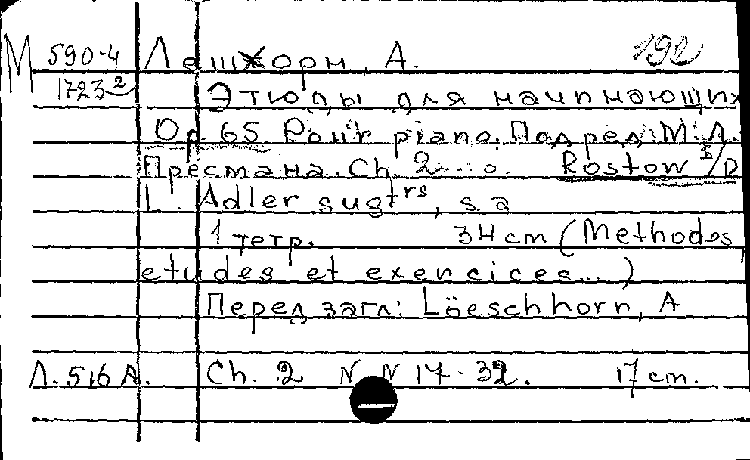 М 590-4 Лешхорн, А. 192
1723² Этюды для начинающих
Op 65 Pour piano. Под ред. М.Л.
Пресмана. Ch. 2... Rostow /D
L. Adler sugtrs, s.a
1 тетр. 34 cm (Methodes,
etudes et exencices...)
Перед загл: Löeschhorn, A
Л. 516 А. Ch. 2 N N 17-32. 17 cm.